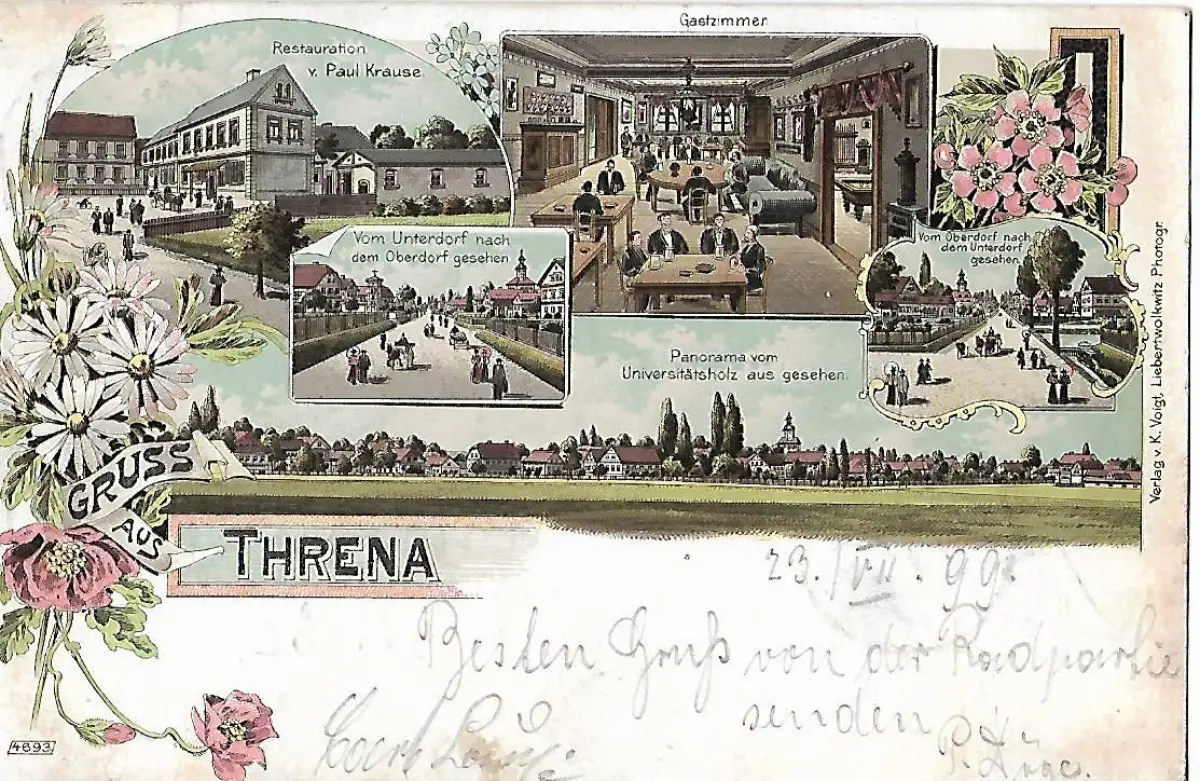 Gastzimmer
Restauration
v. Paul Krause.
Vom Unterdorf nach
dem Oberdorf gesehen
Vom Oberdorf nach
dem Unterdorf
gesehen.
Panorama vom
Universitätsholz aus gesehen.
Verlag v. K. Voigt Liebertwolkwitz Photogr.
GRUSS
AUS
THRENA
23./VII. 99.
Besten Gruß von der Radpartie
senden
4693